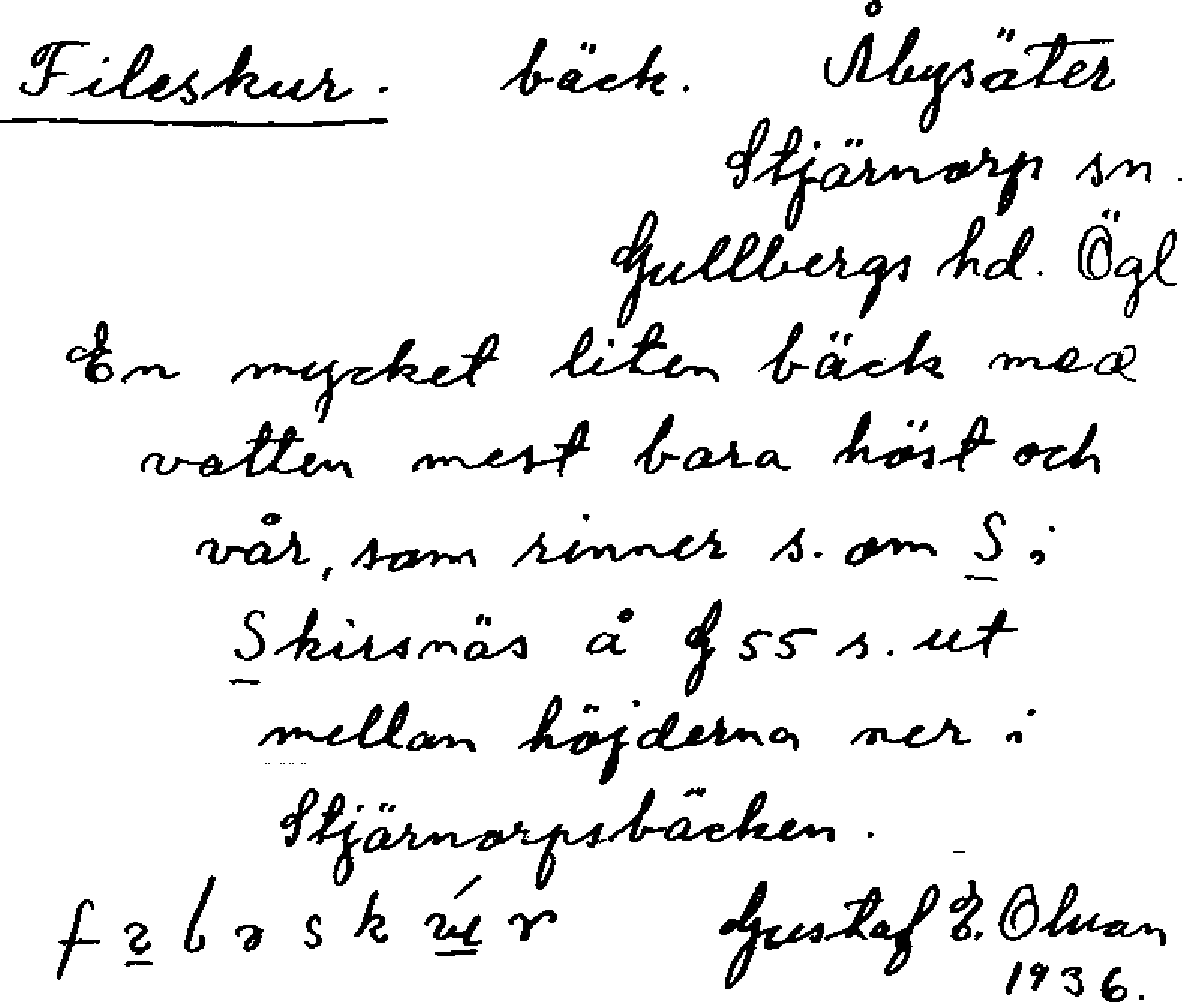 Fileskur. bäck. Åbysäter
Stjärnorp sn.
Gullbergs hd. Ögl
En mycket liten bäck med
vatten mest bara höst och
vår, som rinner s. om S i
Skirsnäs å G 55 s. ut
mellan höjderna ner i
Stjärnorpsbäcken.
Gustaf E. Olvan
1936.